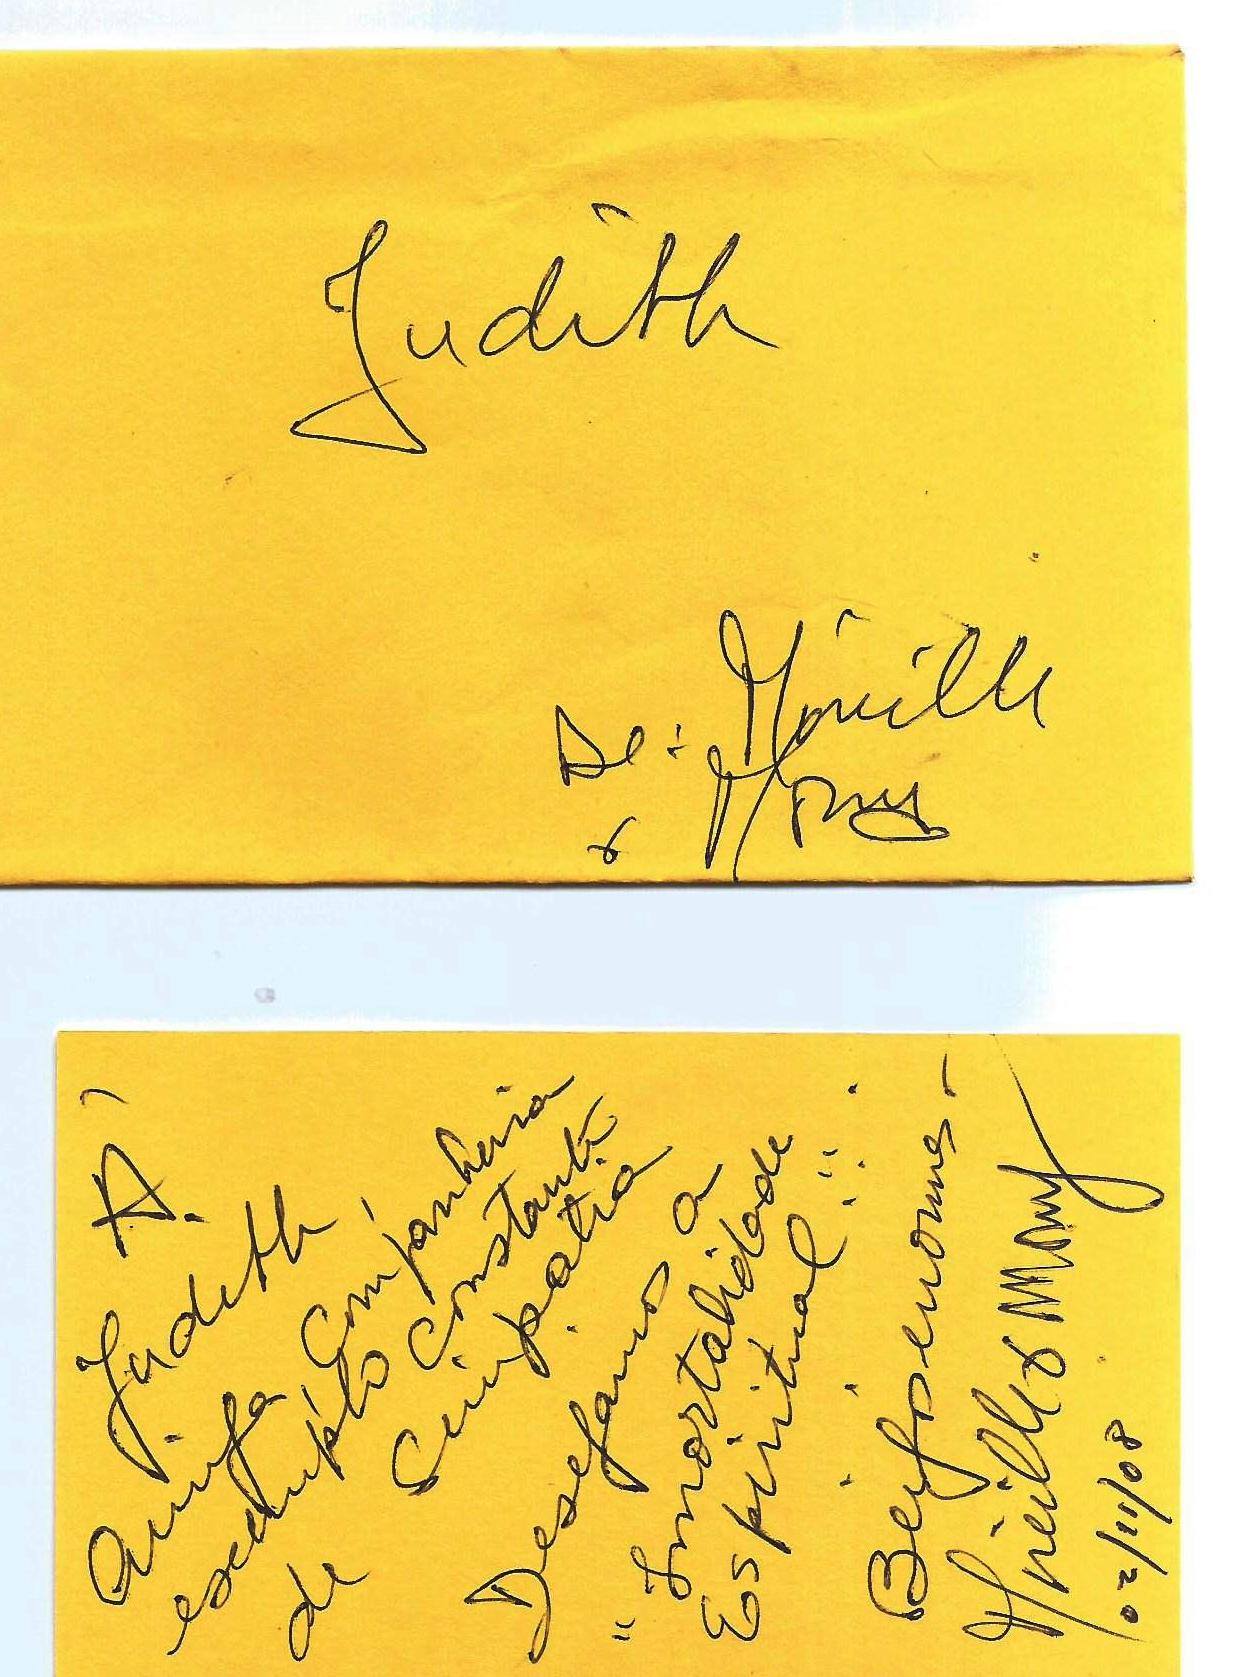 Judith
De: Mireille
& Mony
À
Judith
amiga, companheira
exemplo constante
de simpatia
Desejamos a
"Imortalidade
Espiritual"
Beijos enormes
Mireille & Mony
02/11/08